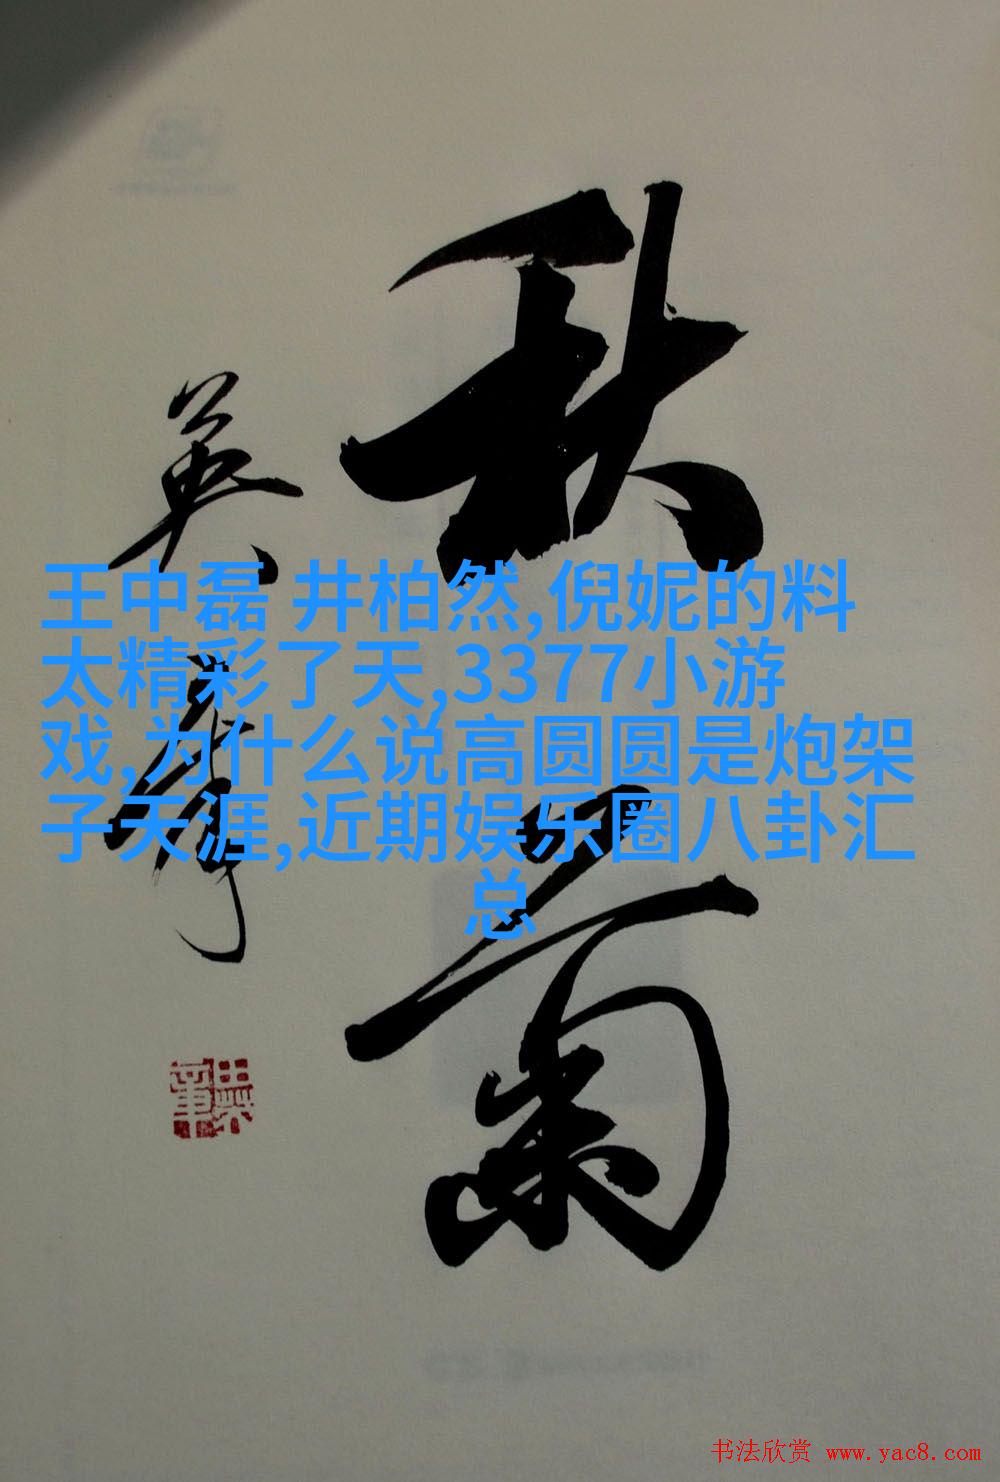 秋菊
英章
田英章
王中磊 井柏然,倪妮的料
太精彩了天,3377小游
戏,为什么说高圆圆是炮架
子天涯,近期娱乐圈八卦汇
总
书法欣赏 www.yac8.com